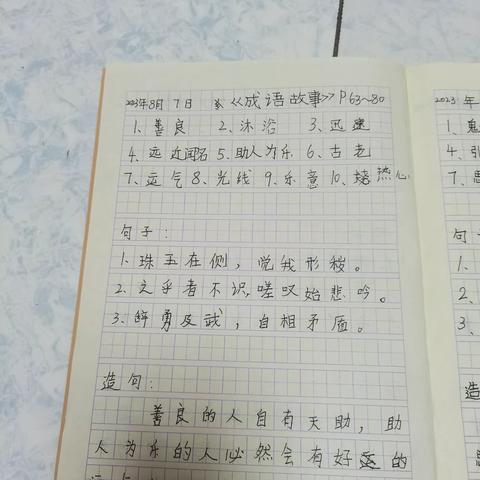 2023年8月7日 《成语故事》P63~80
1、善良 2、沐浴 3、迅速
4、远近闻名 5、助人为乐 6、古老
7、运气 8、光线 9、乐意 10、热心
句子:
1、珠玉在侧,觉我形秽。
2、之乎者不识,嗟叹始悲吟。
3、鲜勇及武,自相矛盾。
造句:
善良的人自有天助,助
人为乐的人必然会有好的
2023年
1、
4、引
7、思
句子
1、
2、
3、
造